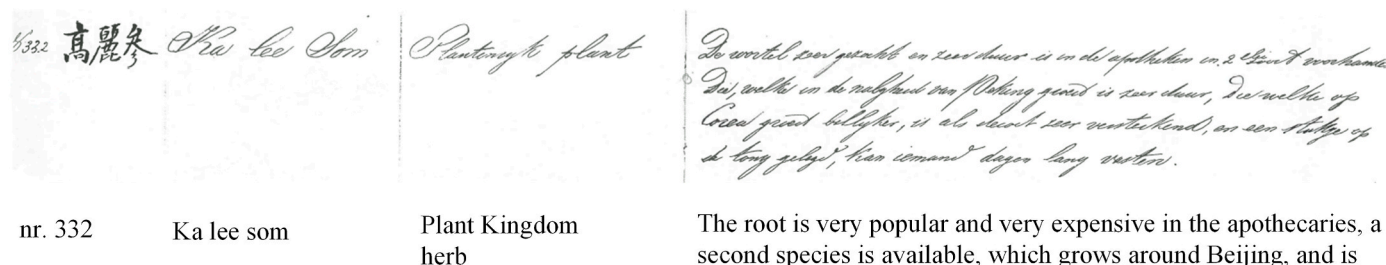 332 高麗參 Ka lee Som Plantenryk plant
De wortel zeer gezocht en zeer duur is in de apotheken in 2 soort voorhanden
Die, welke in de nabyheid van Peking groeid is zeer duur, die welke op
Corea groeid billyker, is als decoct zeer versterkend, en een stukje op
de tong gelegd, kan iemand dagen lang vasten.
nr. 332 Ka lee som Plant Kingdom The root is very popular and very expensive in the apothecaries, a
herb second species is available, which grows around Beijing, and is